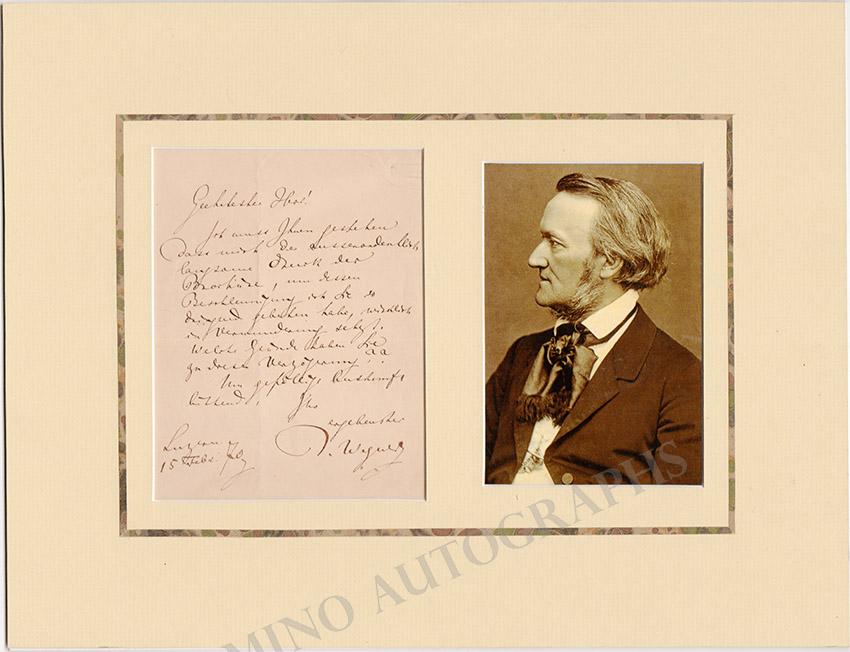 Geehrtester Herr!
Ich muss Ihnen gestehen
dass mich der ausserordentlich
langsame Druck der
Brochüre, um dessen
Beschleunigung ich Sie so
dringend gebeten habe, wirklich
in Verwunderung setzt.
Welche Gründe haben Sie
zu dieser Verzögerung??
Um gefällige Auskunft
bittend, Ihr
ergebenster
Luzern
15 Febr. 70
Wagner
MINO AUTOGRAPHS